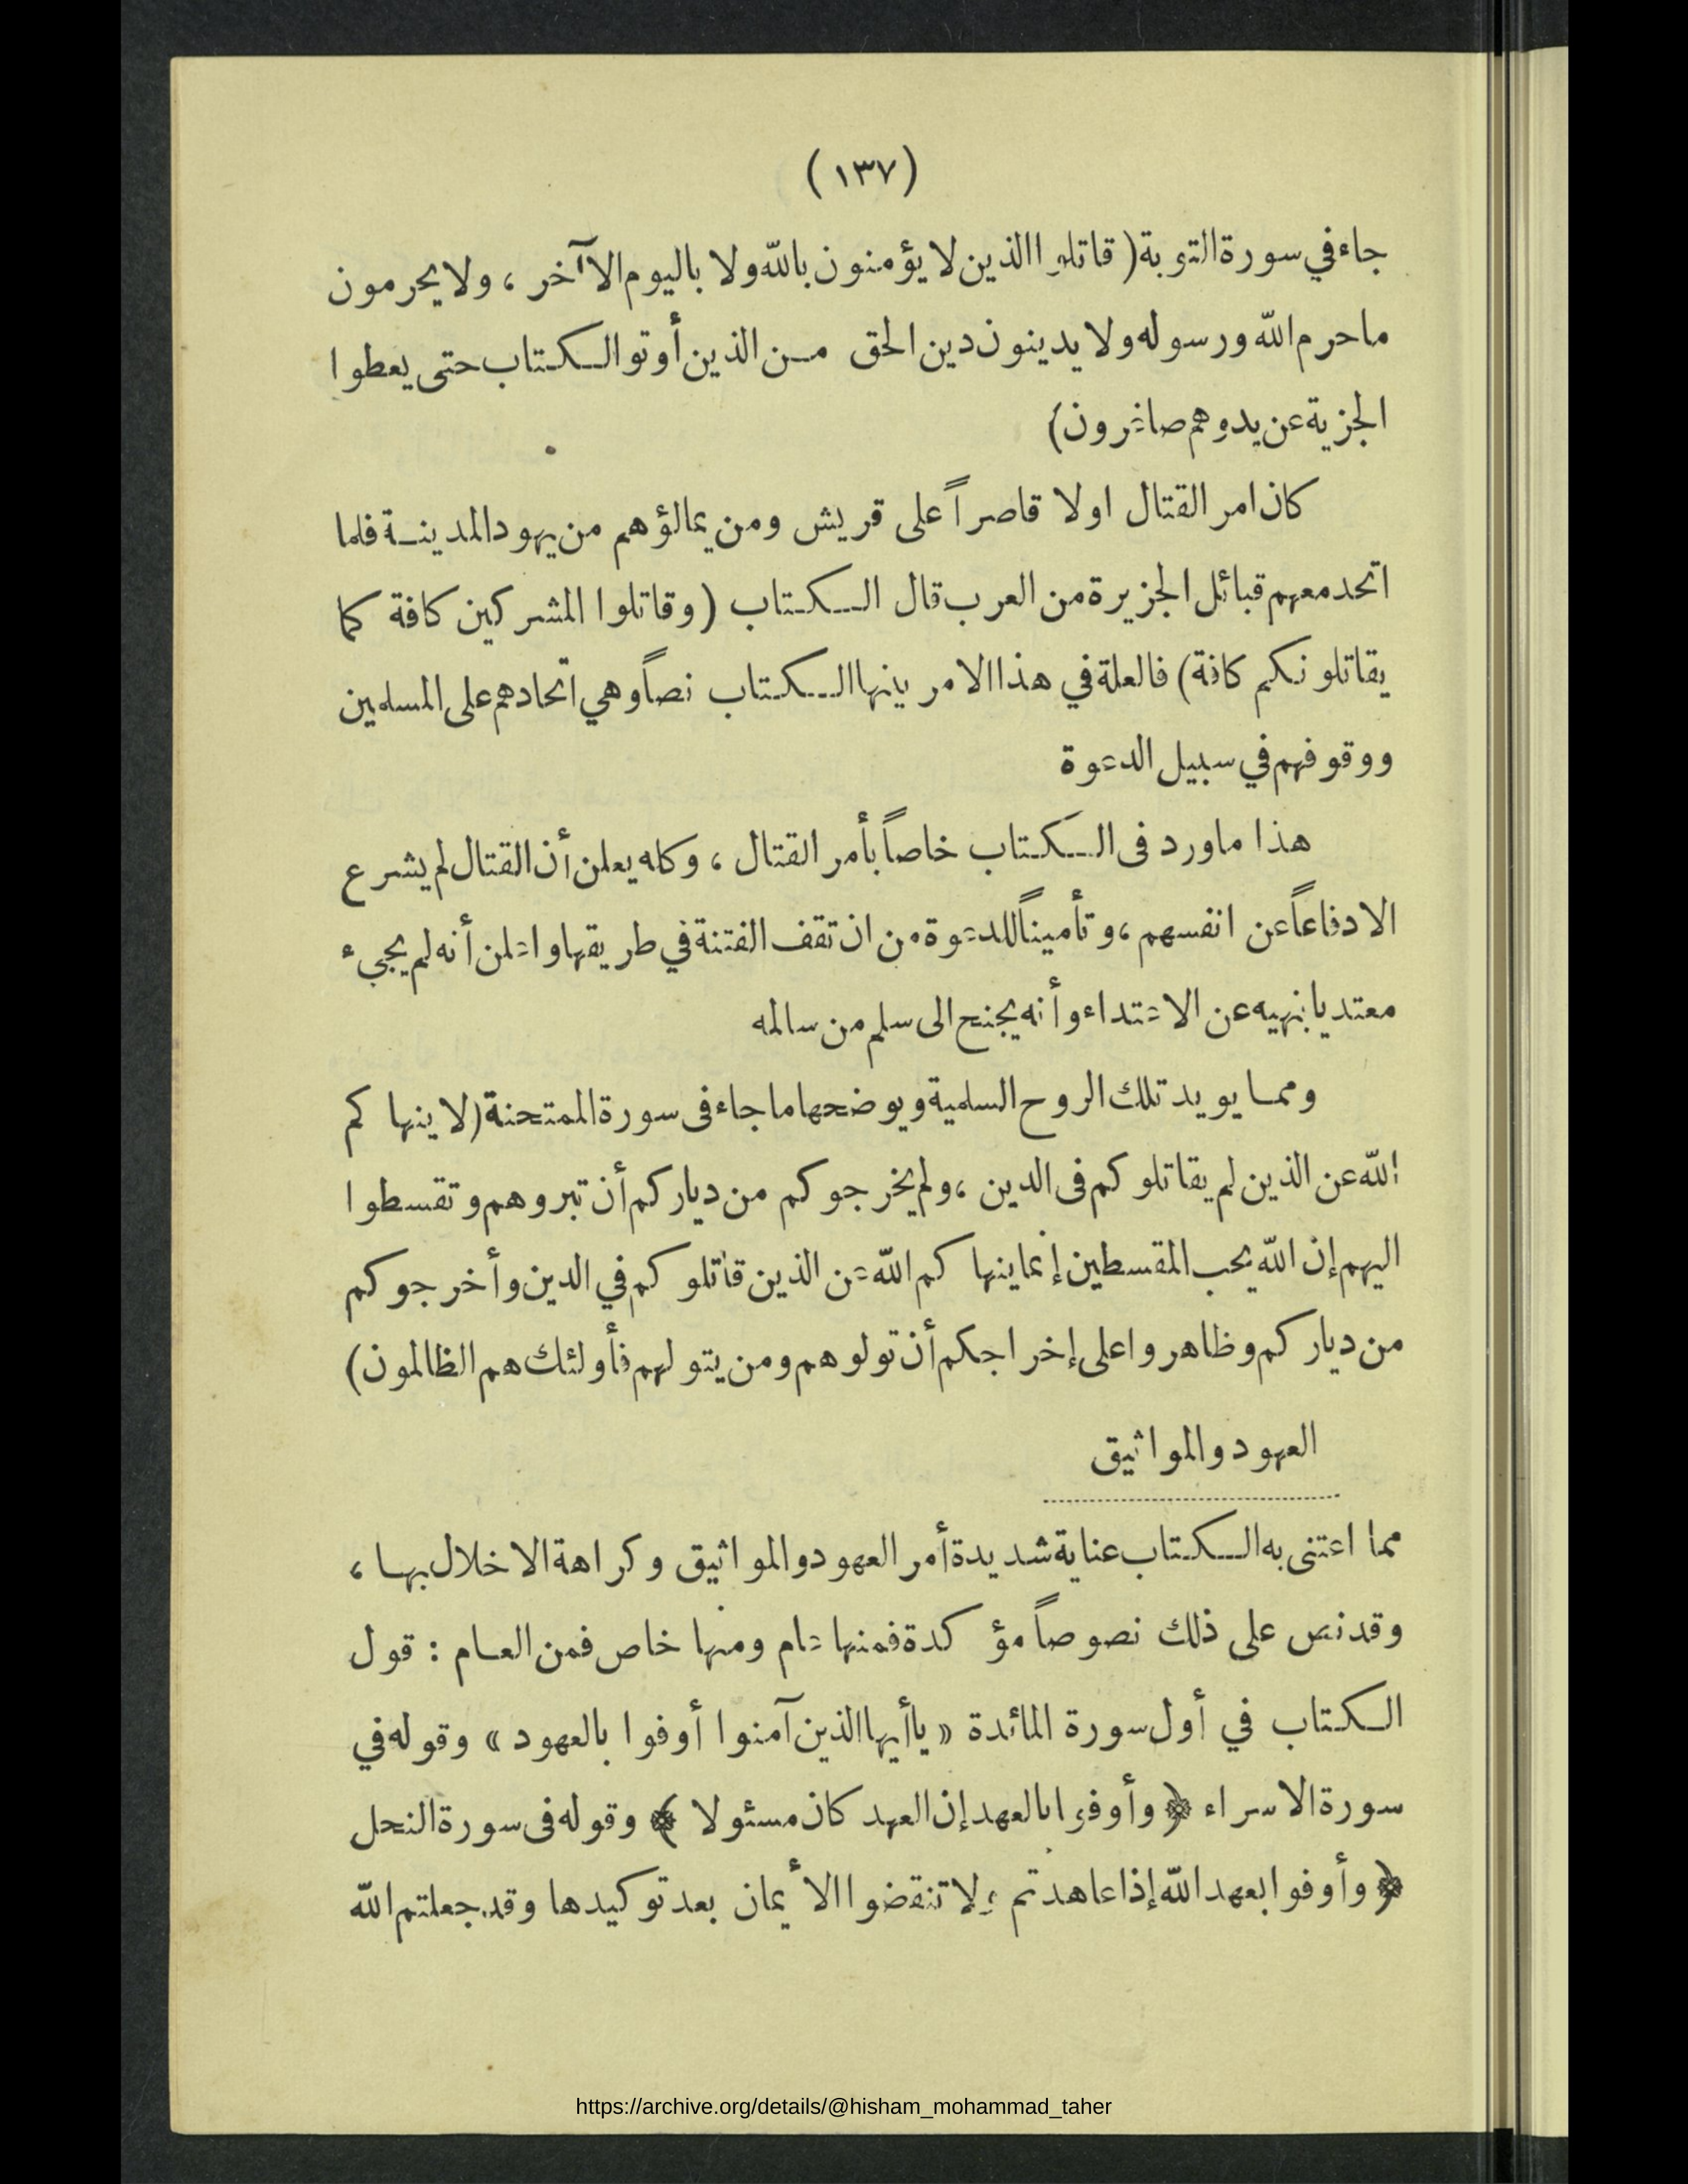 (١٣٧)
جاء في سورة التوبة (قاتلوا الذين لا يؤمنون بالله ولا باليوم الآخر ، ولا يحرمون
ما حرم الله ورسوله ولا يدينون دين الحق من الذين أوتو الكتاب حتى يعطوا
الجزية عن يد وهم صاغرون)
كان امر القتال اولا قاصراً على قريش ومن يمالؤهم من يهود المدينة فلما
اتحد معهم قبائل الجزيرة من العرب قال الكتاب (وقاتلوا المشركين كافة كما
يقاتلونكم كافة) فالعلة في هذا الامر بينها الكتاب نصاً وهي اتحادهم على المسلمين
ووقوفهم في سبيل الدعوة
هذا ما ورد فى الكتاب خاصاً بأمر القتال ، وكله يعلن أن القتال لم يشرع
الا دفاعاً عن انفسهم ، وتأميناً للدعوة من ان تقف الفتنة في طريقها واعلن أنه لم يجيء
معتديا بنهيه عن الاعتداء وأنه يجنح الى سلم من سالمه
ومما يويد تلك الروح السلمية ويوضحها ما جاء فى سورة الممتحنة (لا ينها كم
الله عن الذين لم يقاتلوكم فى الدين ، ولم يخرجوكم من دياركم أن تبروهم وتقسطوا
اليهم إن الله يحب المقسطين إنما ينها كم الله عن الذين قاتلوكم في الدين وأخرجوكم
من دياركم وظاهروا على إخراجكم أن تولوهم ومن يتولهم فأولئك هم الظالمون)
العهود والمواثيق
مما اعتنى به الكتاب عناية شديدة أمر العهود والمواثيق وكراهة الاخلال بها ،
وقد نص على ذلك نصوصاً مؤكدة فمنها عام ومنها خاص فمن العام : قول
الكتاب في أول سورة المائدة « يا أيها الذين آمنوا أوفوا بالعهود » وقوله في
سورة الاسراء ﴿ وأوفوا بالعهد إن العهد كان مسئولا ﴾ وقوله فى سورة النحل
﴿ وأوفوا بعهد الله إذا عاهدتم ولا تنقضوا الأيمان بعد توكيدها وقد جعلتم الله
https://archive.org/details/@hisham_mohammad_taher